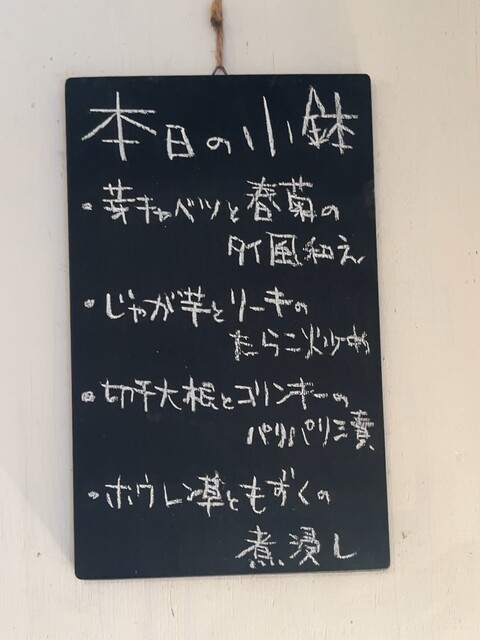 本日の小鉢
・芽キャベツと春菊の
タイ風和え
・じゃが芋とリーキの
たらこ炒め
・切干大根とコリンキーの
パリパリ漬
・ホウレン草ともずくの
煮浸し